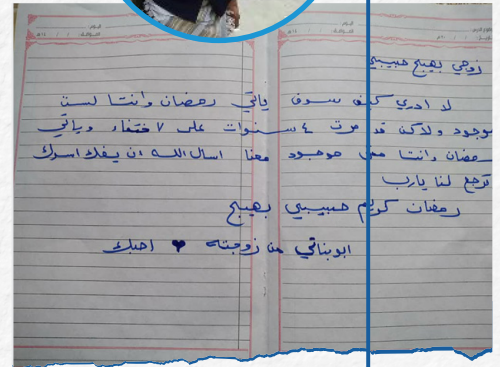 زوجي بهيج حبيبي
لا ادري كيف سوف ياتي رمضان وانتا لست
موجود ولاكن قد مرت ٤ سنوات على ٧ ختفاء وياتي
رمضان وانتا مش موجود معنا اسال الله ان يفك اسرك
ترجع لنا يارب
رمضان كريم حبيبي بهيج
ابو بناتي من زوجته ♥ احبك